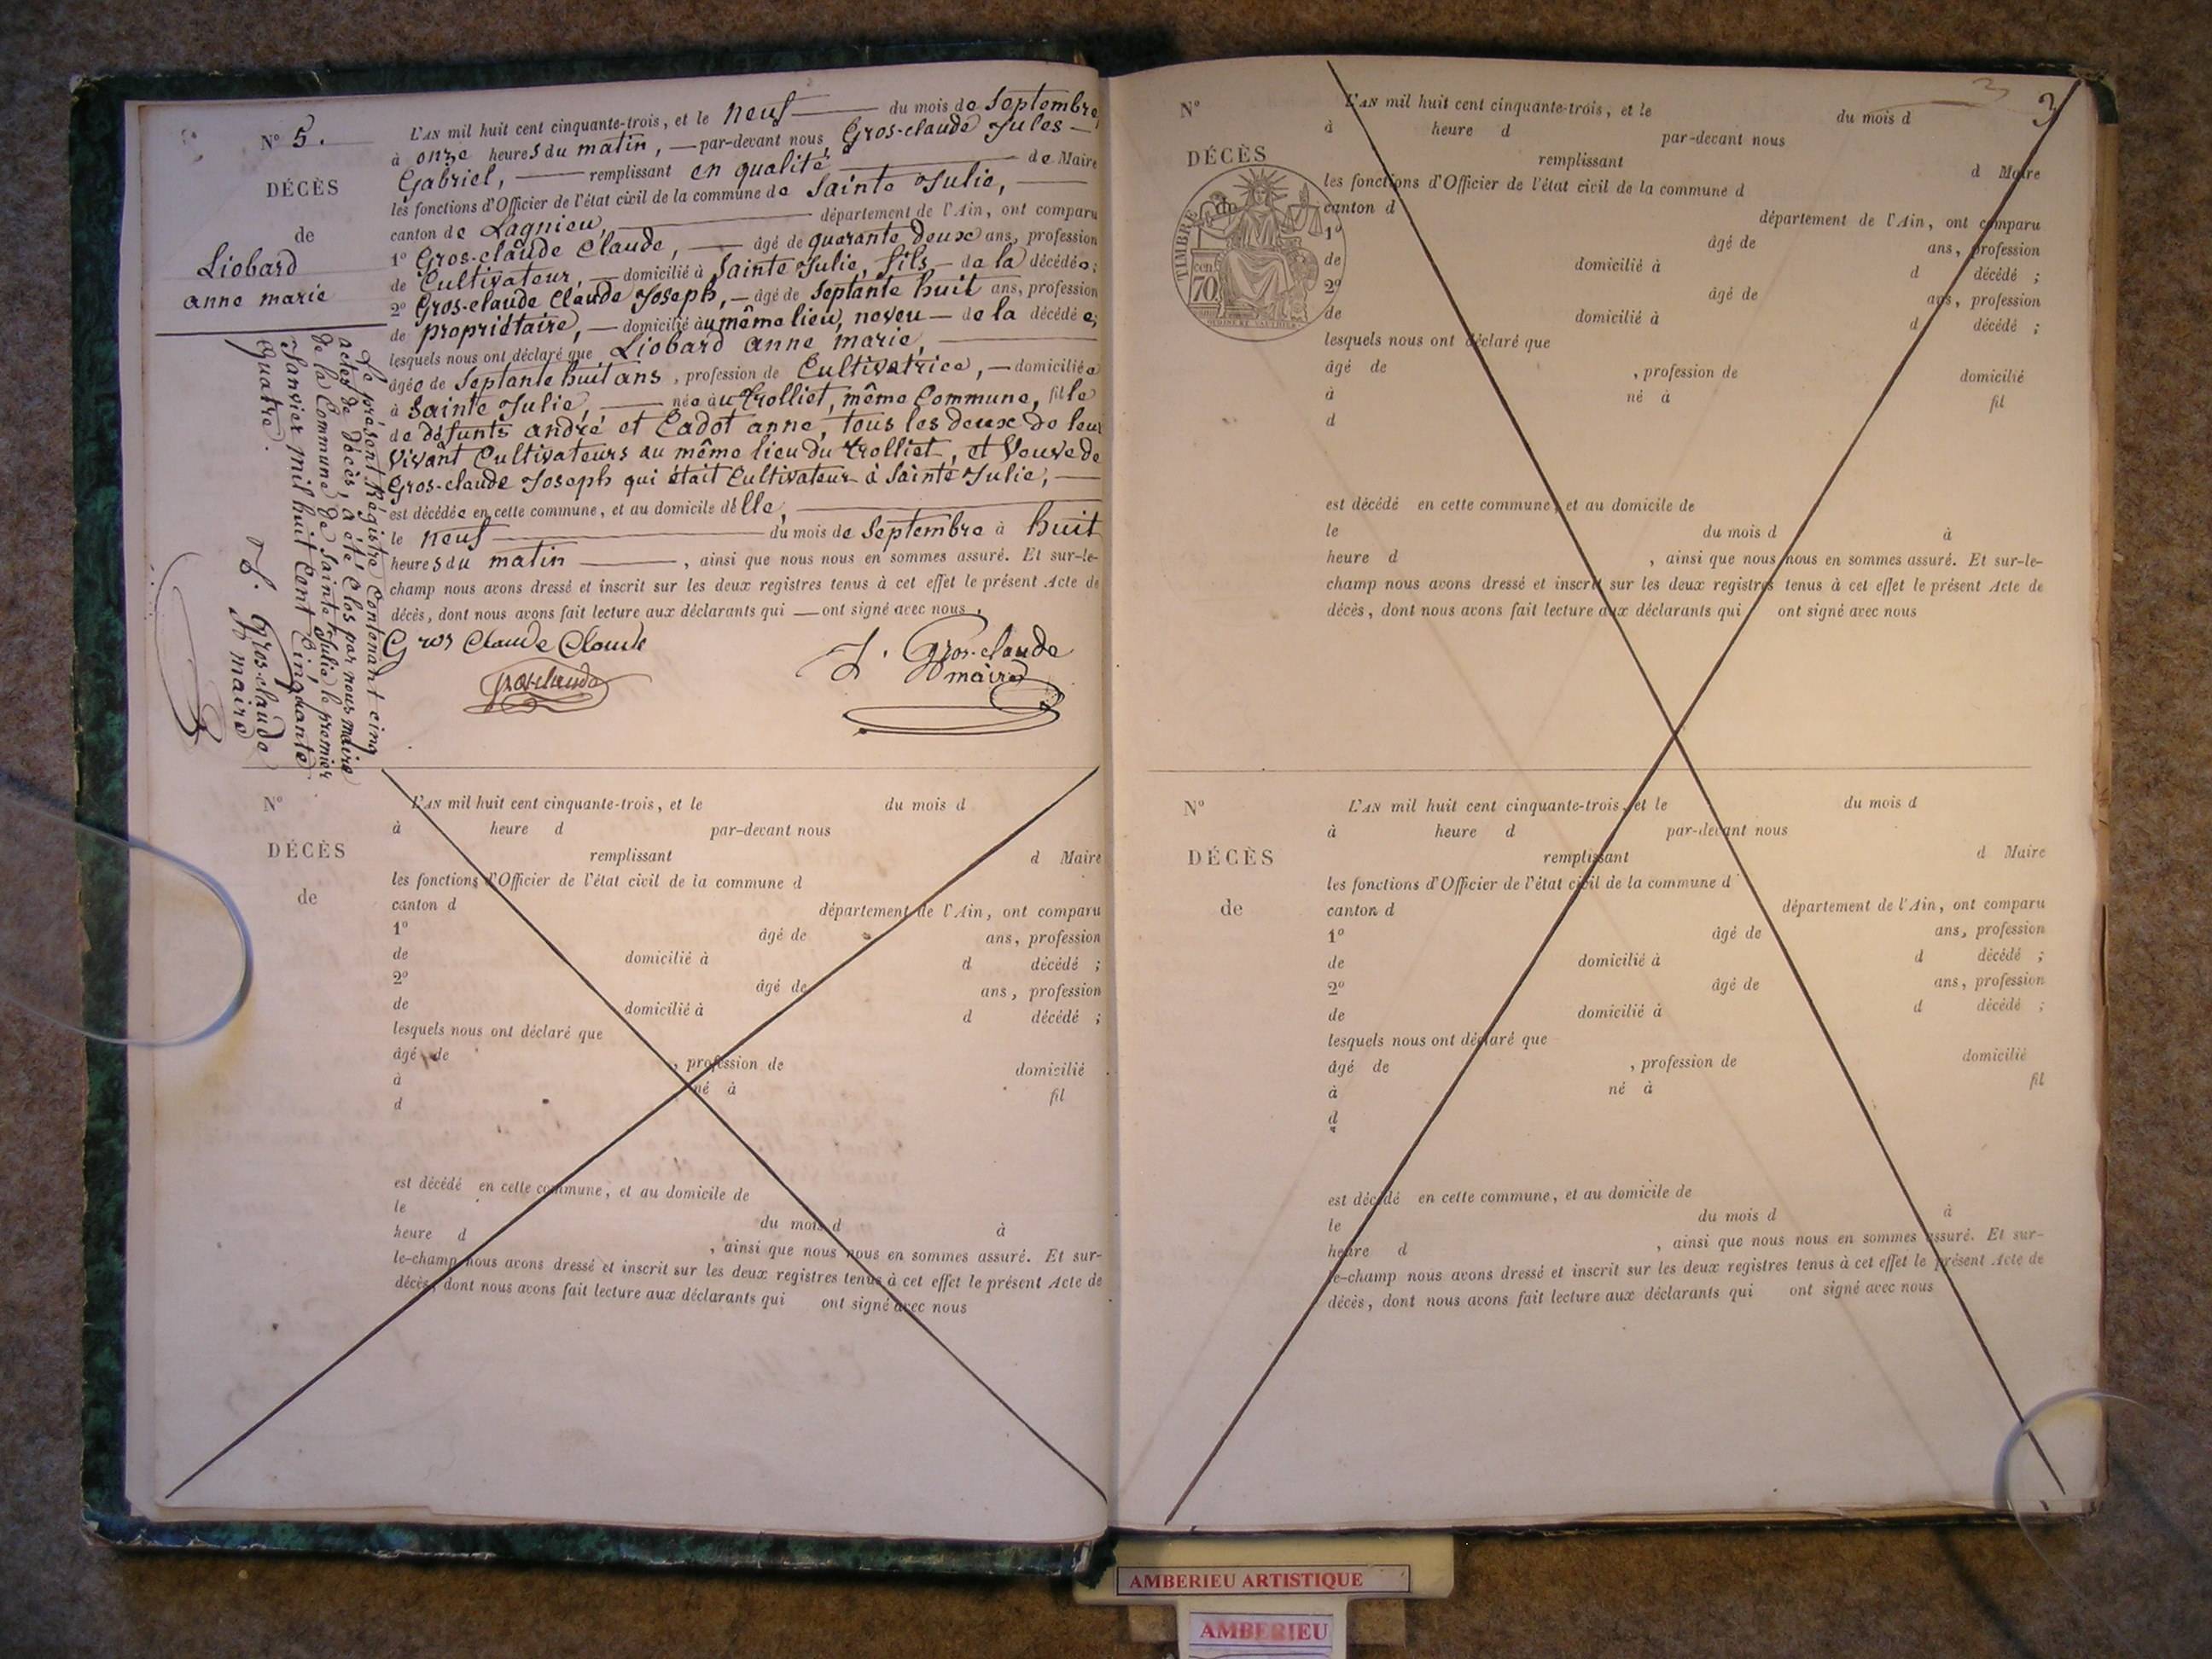 N.º 5.
DÉCÈS
de
Liobard
anne marie
L'AN mil huit cent cinquante-trois, et le neuf du mois de Septembre,
à onze heures du matin, par-devant nous Gros-claude Jules
Gabriel, remplissant en qualité de Maire
les fonctions d'Officier de l'état civil de la commune de Sainte Julie,
canton de Lagnieu, département de l'Ain, ont comparu
1º Gros-claude Claude, âgé de quarante deux ans, profession
de Cultivateur, domicilié à Sainte Julie, fils de la décédée;
2º Gros-claude Claude Joseph, âgé de Septante huit ans, profession
de propriétaire, domicilié au même lieu, neveu de la décédée;
lesquels nous ont déclaré que Liobard anne marie,
âgée de Septante huit ans, profession de Cultivatrice, domiciliée
à Sainte Julie, née au trolliet, même Commune, fille
de défunts andré et Cadot anne, tous les deux de leur
vivant Cultivateurs au même lieu du trolliet, et Veuve de
Gros-claude Joseph qui était Cultivateur à Sainte Julie;
est décédée en cette commune, et au domicile d'elle,
le neuf du mois de Septembre à huit
heures du matin, ainsi que nous nous en sommes assuré. Et sur-le-
champ nous avons dressé et inscrit sur les deux registres tenus à cet effet le présent Acte de
décès, dont nous avons fait lecture aux déclarants qui ont signé avec nous.
Gros Claude Claude
Grosclaude
J. Gros-claude
maire
Le présent Régistre Contenant cinq
actes de décès, a été Clos par nous maire
de la Commune de Sainte Julie le premier
Janvier mil huit Cent Cinquante
quatre.
J. Gros-claude
maire
Nº
DÉCÈS
de
L'AN mil huit cent cinquante-trois, et le du mois d
à heure d par-devant nous
remplissant d Maire
les fonctions d'Officier de l'état civil de la commune d
canton d département de l'Ain, ont comparu
1º âgé de ans, profession
de domicilié à d décédé ;
2º âgé de ans, profession
de domicilié à d décédé ;
lesquels nous ont déclaré que
âgé de , profession de domicilié
à né à fil
d
est décédé en cette commune, et au domicile de
le du mois d à
heure d , ainsi que nous nous en sommes assuré. Et sur-
le-champ nous avons dressé et inscrit sur les deux registres tenus à cet effet le présent Acte de
décès, dont nous avons fait lecture aux déclarants qui ont signé avec nous
3
3
Nº
DÉCÈS
de
TIMBRE
cen.
70
L'AN mil huit cent cinquante-trois, et le du mois d
à heure d par-devant nous
remplissant d Maire
les fonctions d'Officier de l'état civil de la commune d
canton d département de l'Ain, ont comparu
1º âgé de ans, profession
de domicilié à d décédé ;
2º âgé de ans, profession
de domicilié à d décédé ;
lesquels nous ont déclaré que
âgé de , profession de domicilié
à né à fil
d
est décédé en cette commune, et au domicile de
le du mois d à
heure d , ainsi que nous nous en sommes assuré. Et sur-le-
champ nous avons dressé et inscrit sur les deux registres tenus à cet effet le présent Acte de
décès, dont nous avons fait lecture aux déclarants qui ont signé avec nous
Nº
DÉCÈS
de
L'AN mil huit cent cinquante-trois, et le du mois d
à heure d par-devant nous
remplissant d Maire
les fonctions d'Officier de l'état civil de la commune d
canton d département de l'Ain, ont comparu
1º âgé de ans, profession
de domicilié à d décédé ;
2º âgé de ans, profession
de domicilié à d décédé ;
lesquels nous ont déclaré que
âgé de , profession de domicilié
à né à fil
d
est décédé en cette commune, et au domicile de
le du mois d à
heure d , ainsi que nous nous en sommes assuré. Et sur-
le-champ nous avons dressé et inscrit sur les deux registres tenus à cet effet le présent Acte de
décès, dont nous avons fait lecture aux déclarants qui ont signé avec nous
AMBERIEU ARTISTIQUE
AMBERIEU